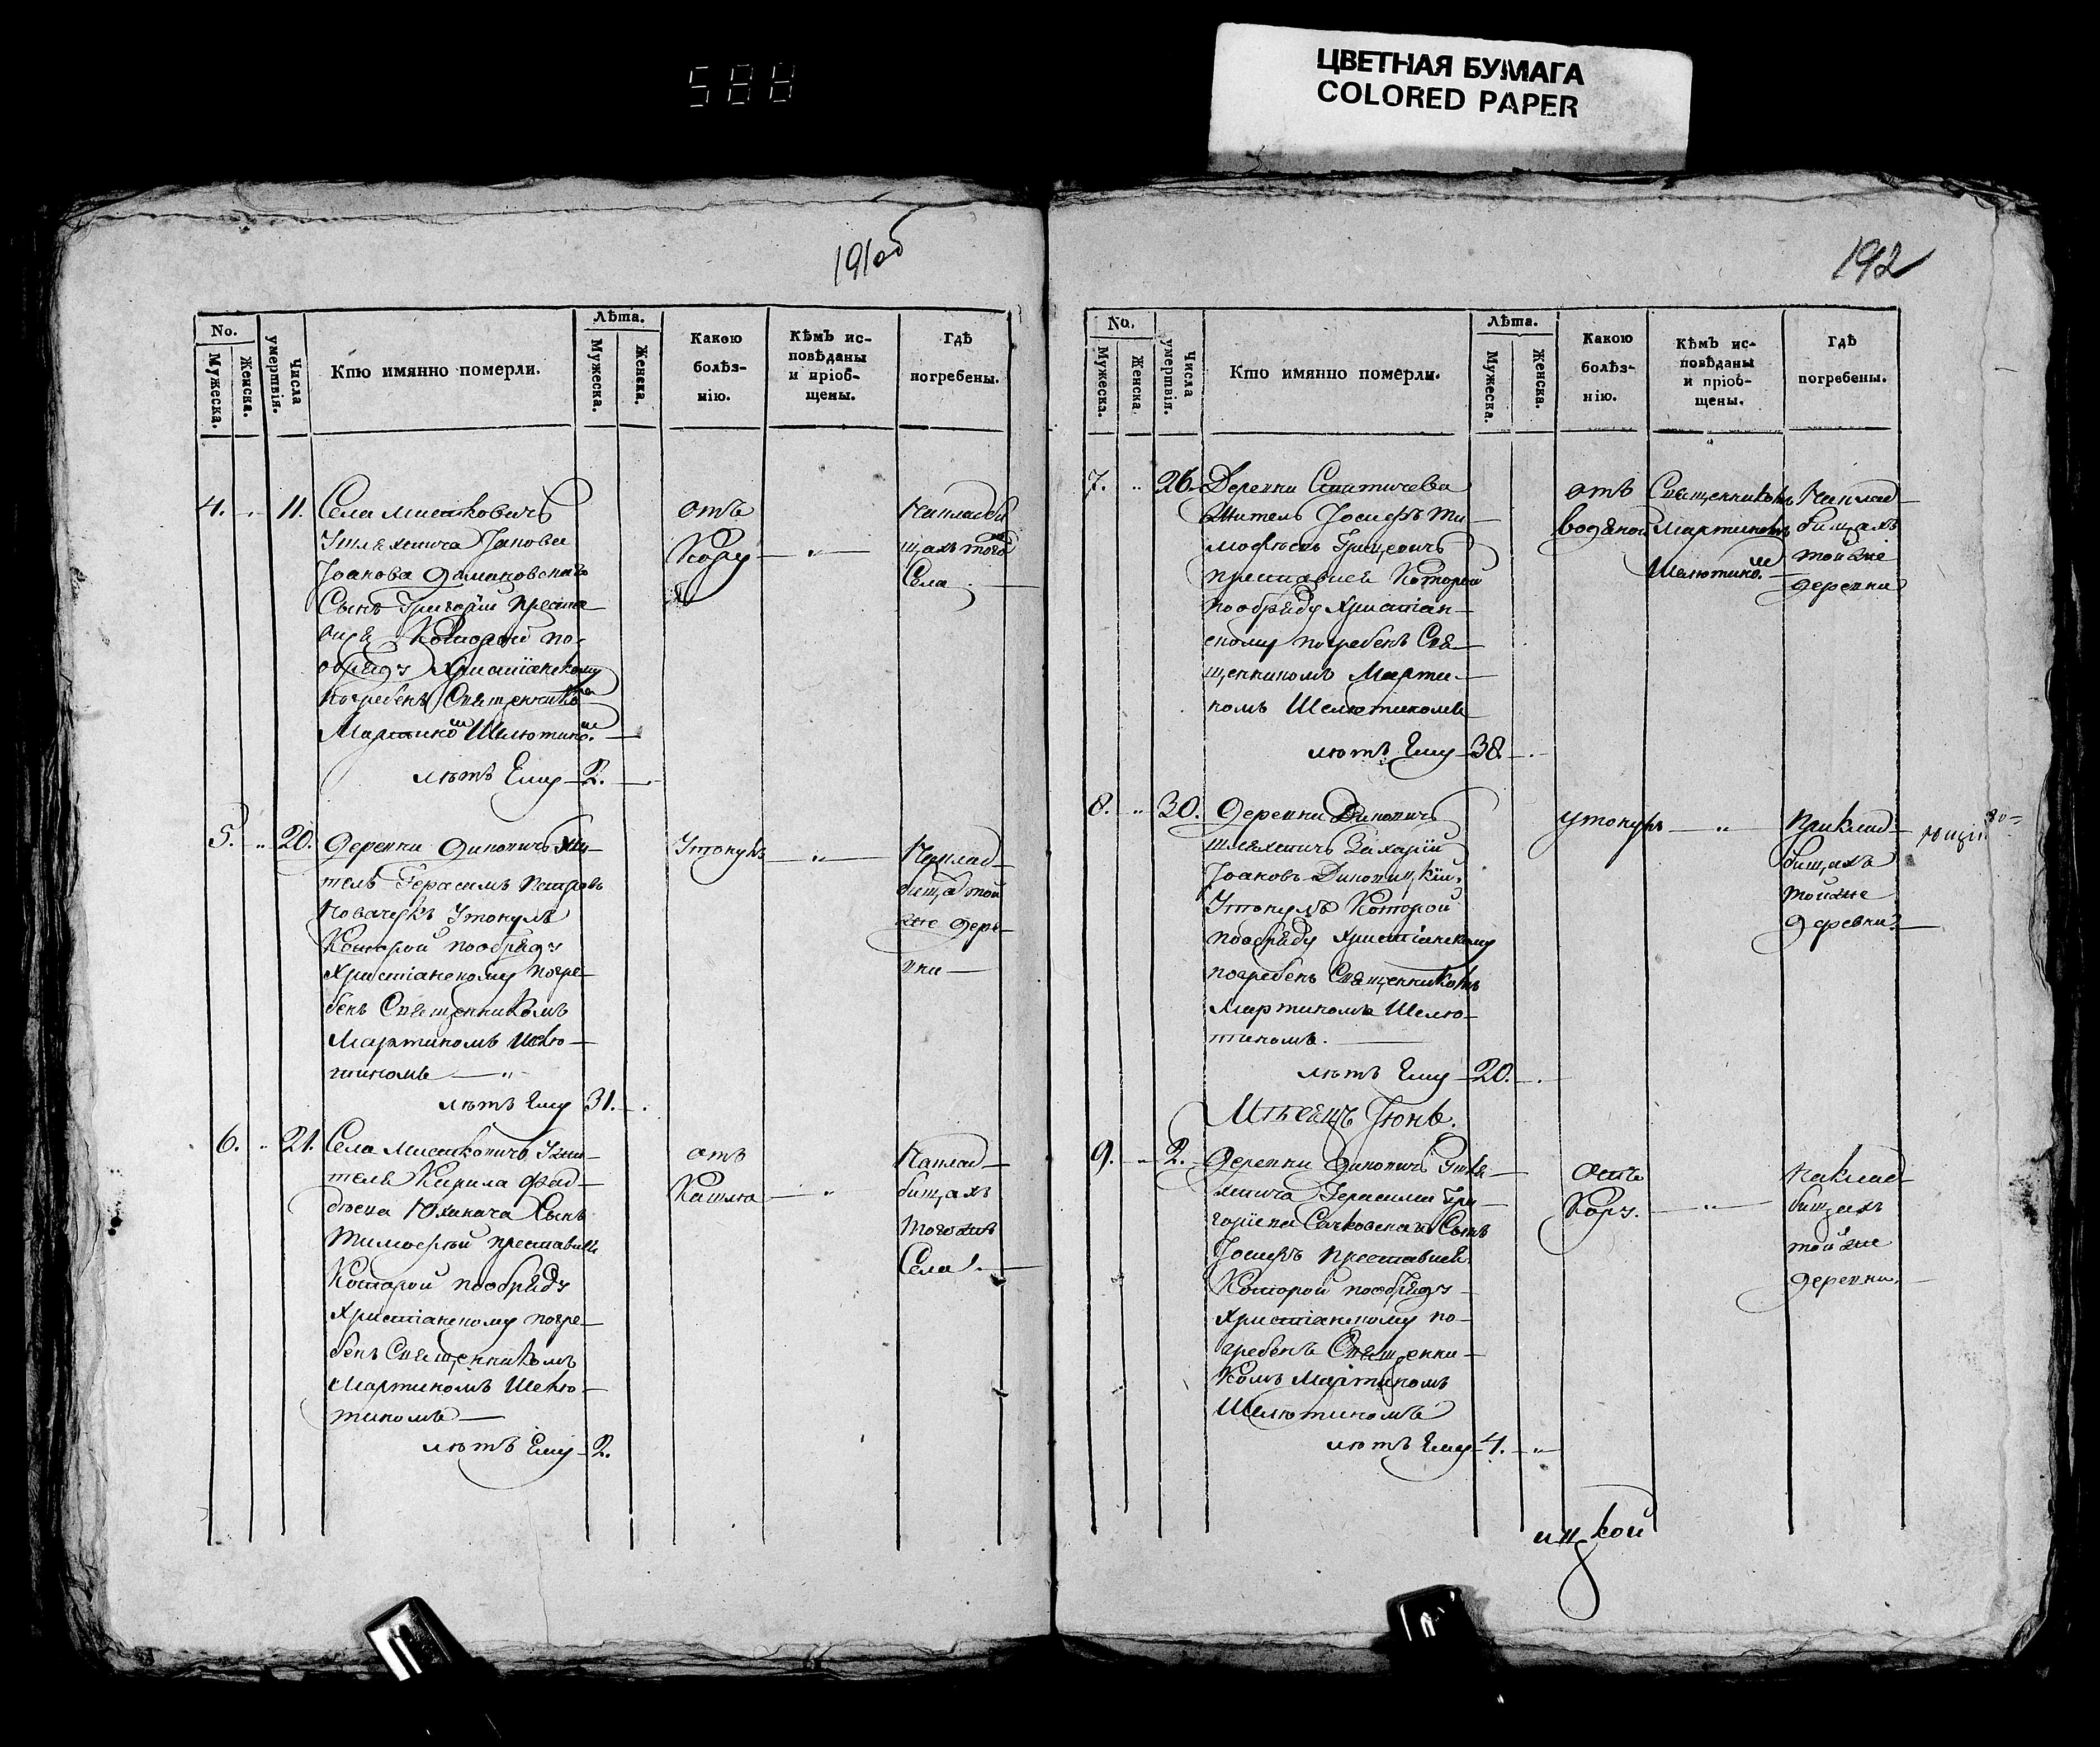 588
ЦВЕТНАЯ БУМАГА
COLORED PAPER
191об
No.
Мужеска.
Женска.
Числа умертвія.
Кто имянно померли.
Лѣта.
Мужеска.
Женска.
Какою болѣз-
нію.
Кѣмъ ис-
повѣданы
и пріоб-
щены.
Гдѣ
погребены.
4. 11. Села
Іоанова
Сынъ Григорій преста-
вися Которой по
обряду Христіанскому
погребенъ Священико
Мартино Шелютино.
лѣтъ Ему 2.
отъ
Кору
щахъ того
Села
5. 20. деревни Диновичъ Жи-
тель Герасимъ
Утонулъ
Которой пообряду
Христіанскому погре-
бенъ Священникомъ
Мартиномъ Шелю-
тиномъ
лѣтъ Ему 31.
Утонулъ
бища той
же дере-
вни
6. 21. Села
тель Кирила Фад-
дѣева Сынъ
Тимофтей преставися
Которой пообряду
Христіанскому погре-
бенъ Священникомъ
Мартиномъ Шелю-
тиномъ
лѣтъ Ему 2.
отъ
Кашлю
Наклад-
бищахъ
тогожъ
Села
192
No.
Мужеска.
Женска
Числа умертвія.
Кто имянно померли.
Лѣта.
Мужеска.
Женска.
Какою
болѣз-
нію.
Кѣмъ ис-
повѣданы
и пріоб-
щены.
Гдѣ
погребены.
7. 26. Деревни
Житель Іосифъ Ти-
мофѣевъ Грицевичъ
преставися Которой
пообряду Христіан-
скому погребенъ Свя-
щенникомъ Марти-
номъ Шелютиномъ
лѣтъ Ему 38.
отъ
водяной
Священникомъ
Мартиномъ
Шелютино.
Наклад-
бищахъ
тойже
деревни
8. 30. деревни Диновичъ
шляхтичъ Захарій
Іоановъ
Утонулъ Которой
пообряду Христіанскому
погребенъ Священникомъ
Мартиномъ Шелю-
тиномъ.
лѣтъ Ему 20.
утонулъ
Наклад-
бищахъ
тойже
деревни
Мѣсяцъ Іюнь.
9. 2. деревни Диновичъ Шля-
хтича Герасима Гри-
горіева Сынъ
Іосифъ преставися
Которой пообряду
Христіанскому по-
гребенъ Священни-
комъ Мартиномъ
Шелютиномъ
лѣтъ Ему 4.
отъ
Кору.
Наклад-
бищахъ
тойже
деревни.